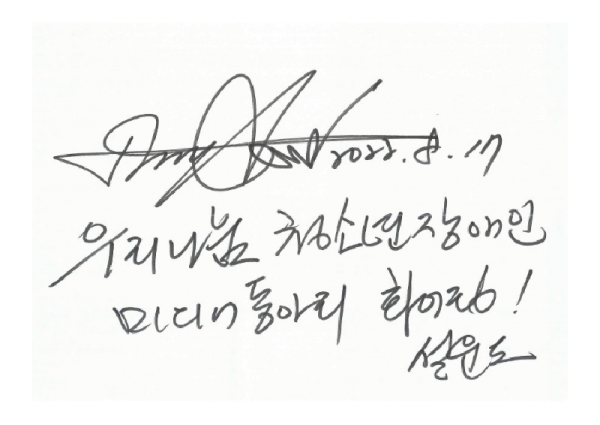 2022. 8. 17
우리나눔 청소년장애인
미디어 동아리 화이팅!
설운도